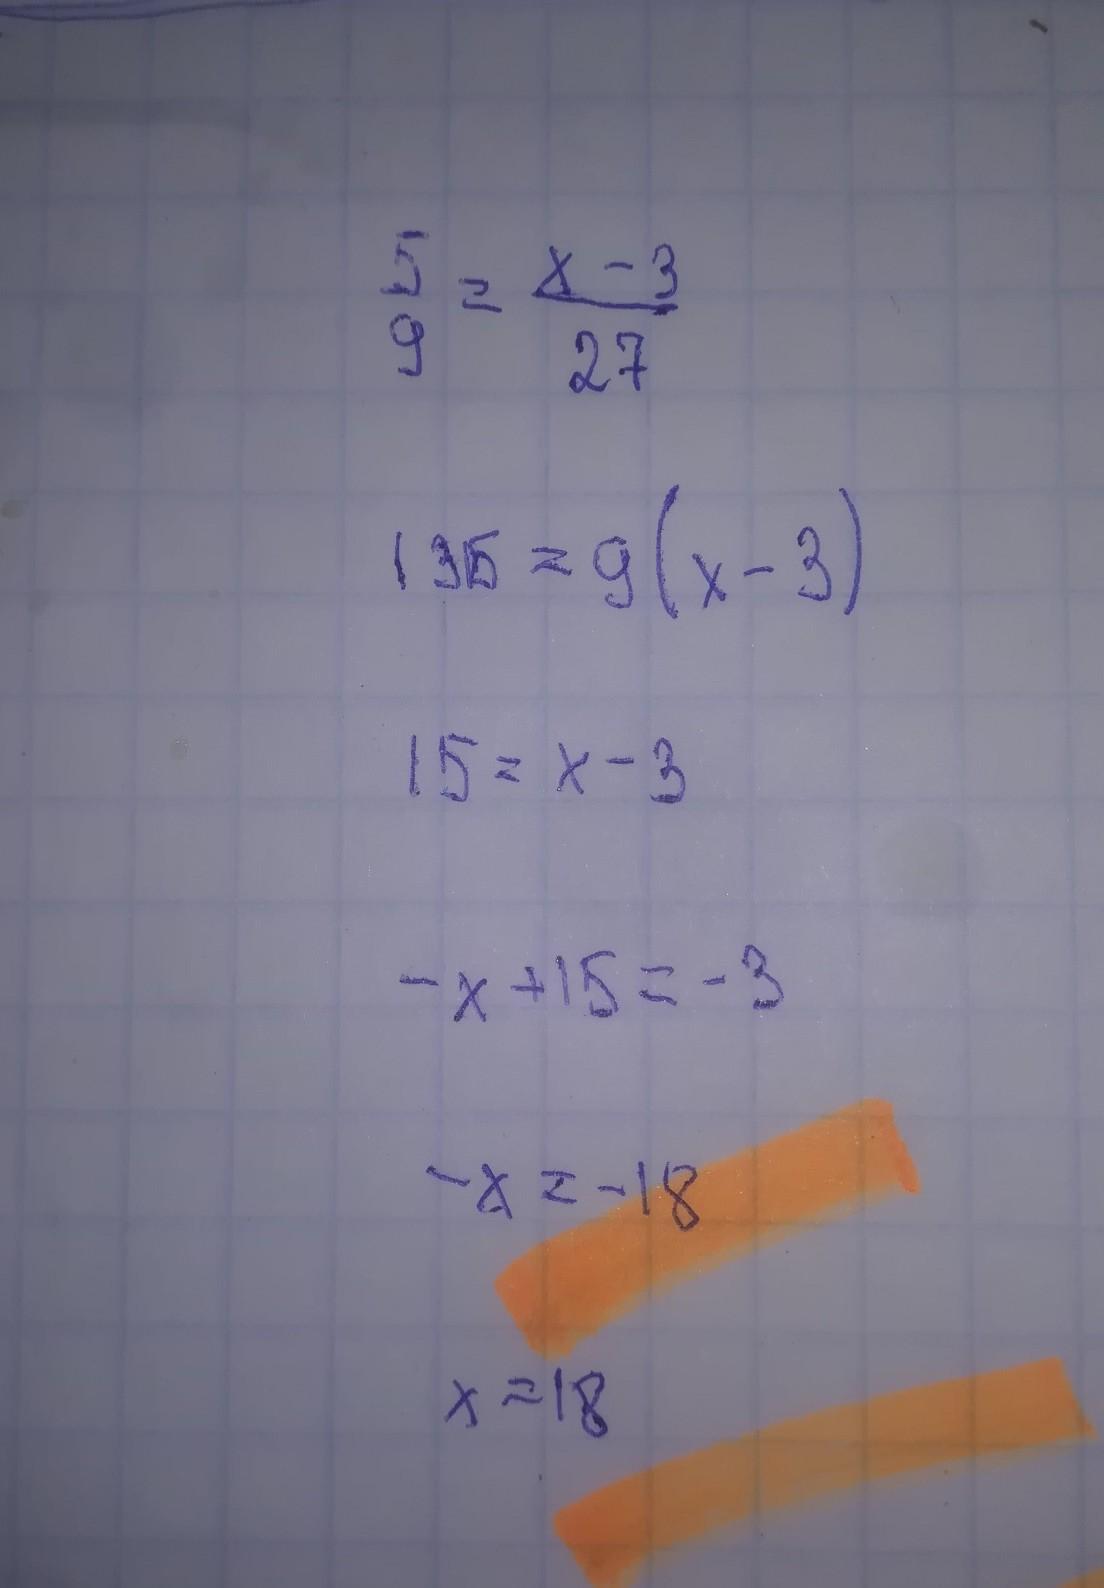 5/9 = (x - 3)/27
135 = 9(x - 3)
15 = x - 3
-x + 15 = -3
-x = -18
x = 18